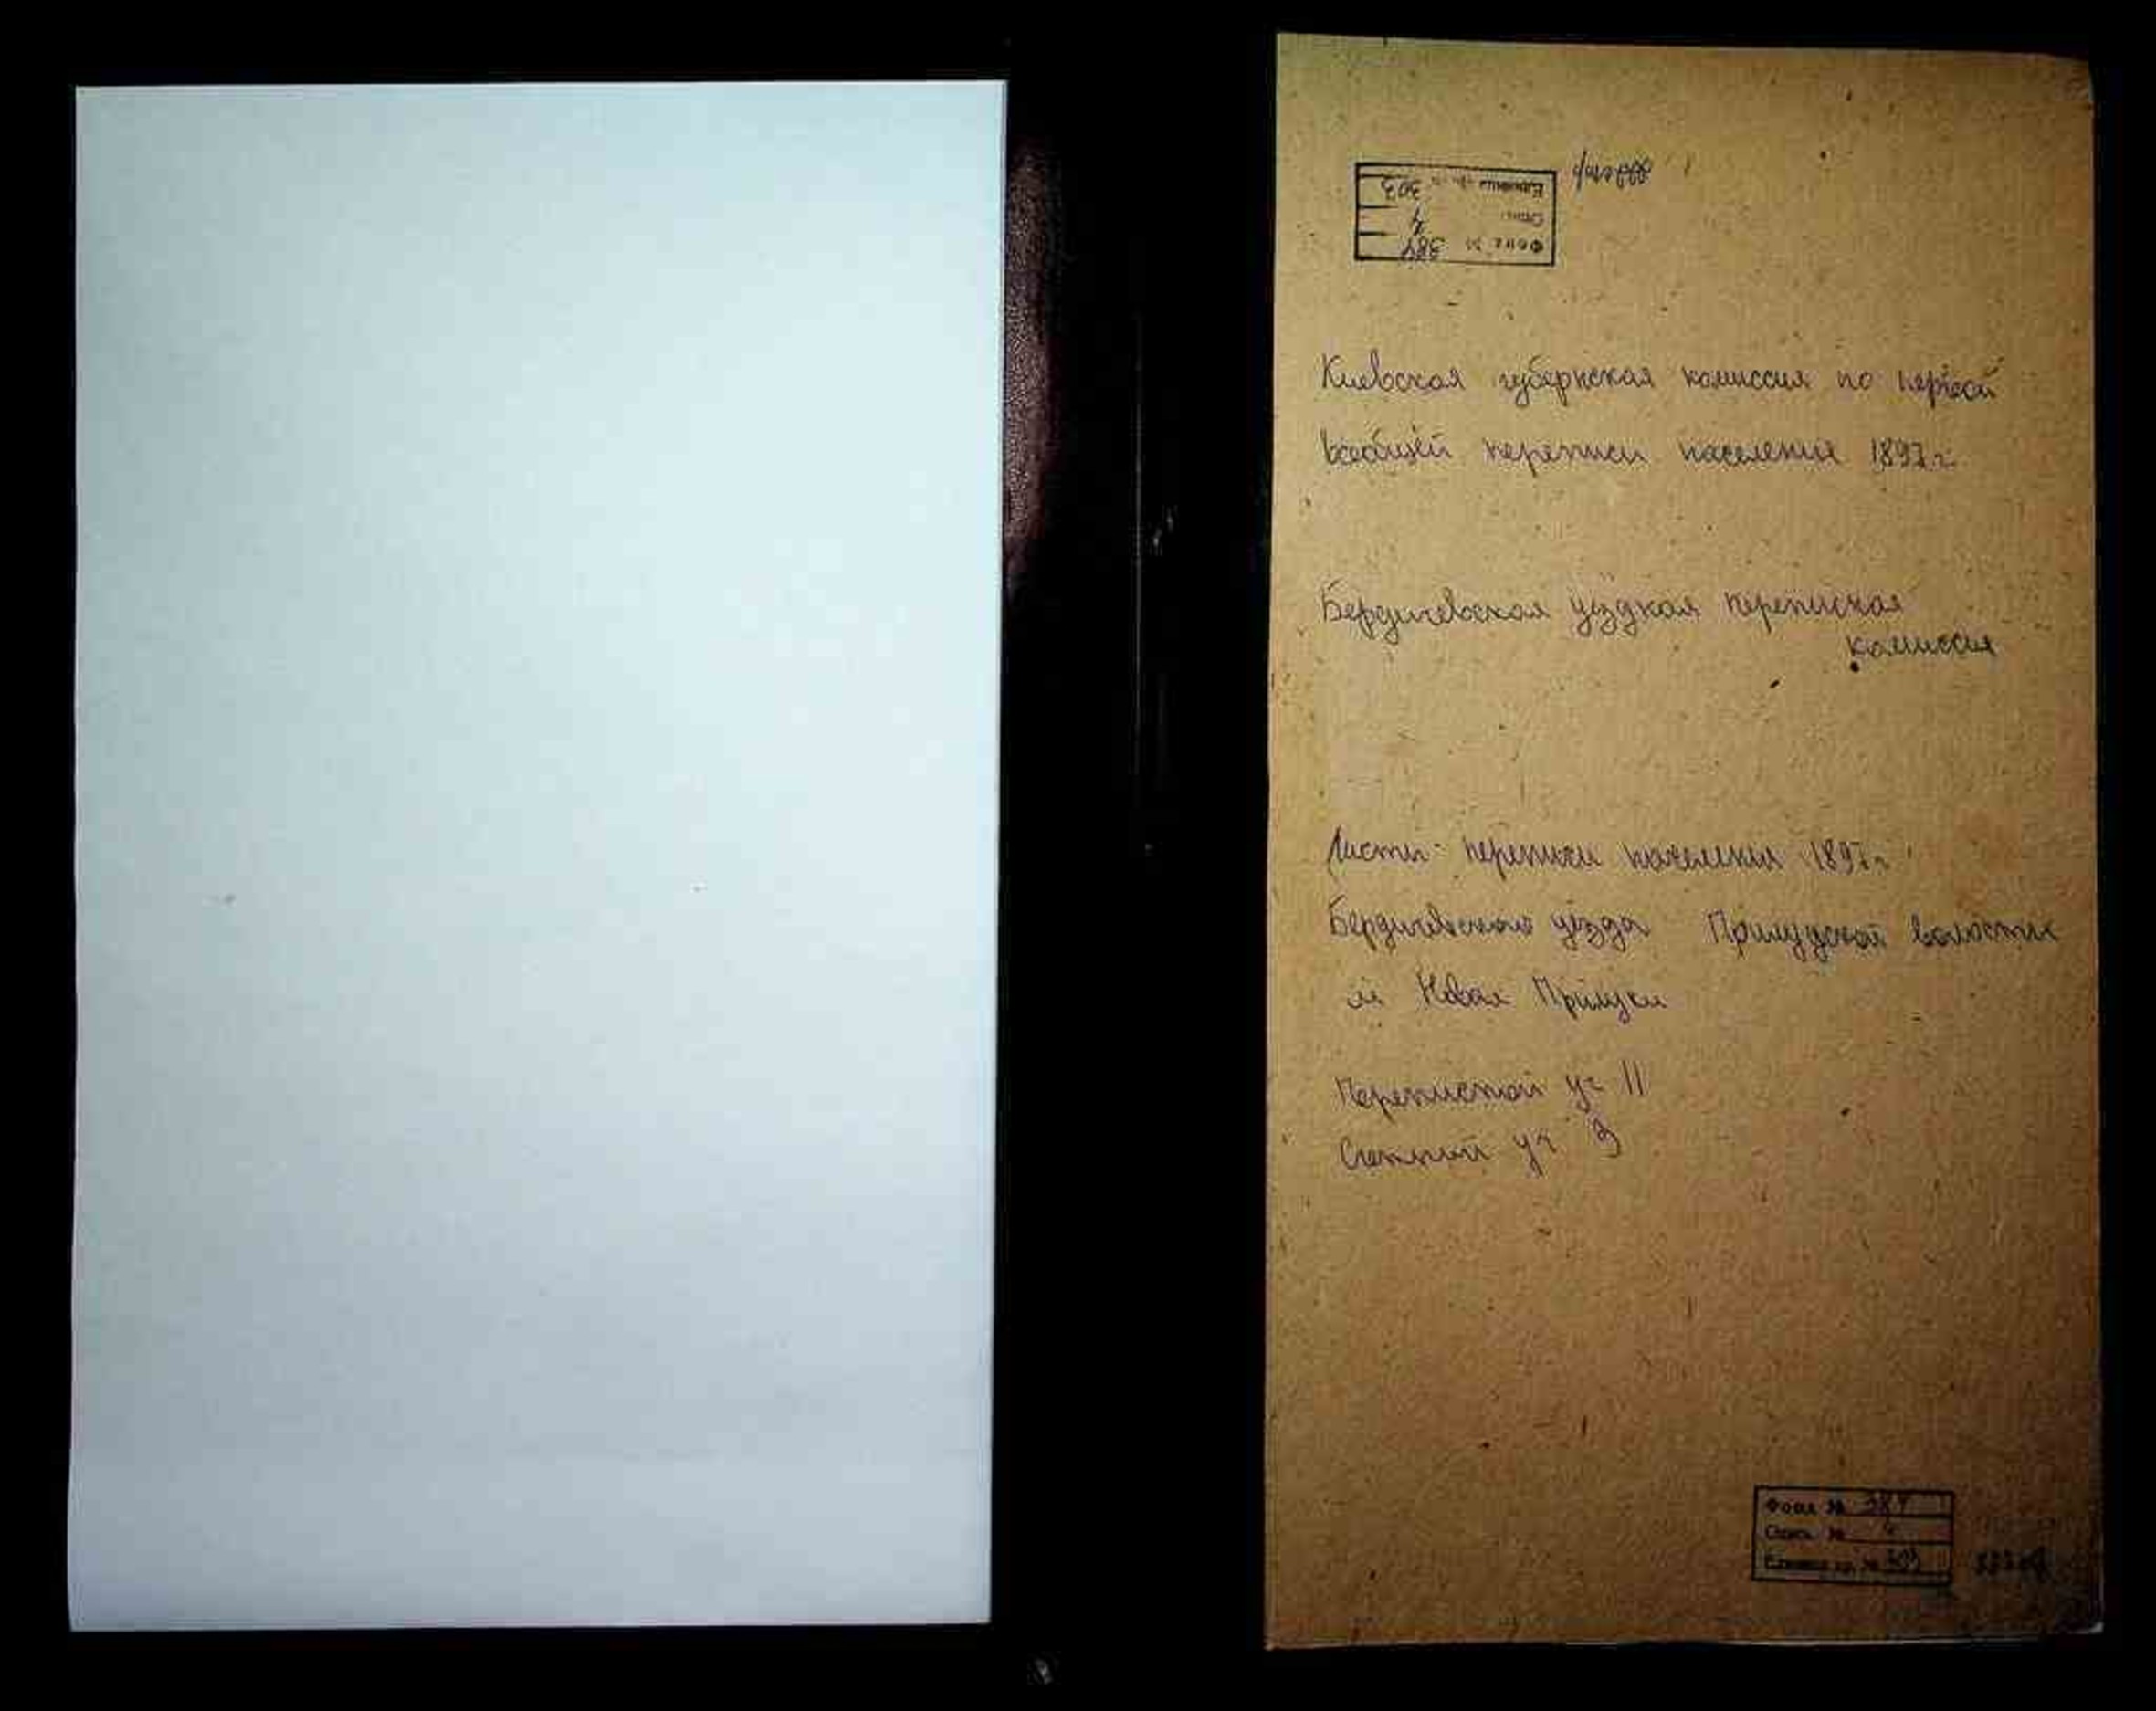 Фонд № 384
Опись 4
Единица хр. № 303
Киевская губернская комиссия по первой
всеобщей переписи населения 1897 г.
Бердичевская уездная переписная
комиссия
Листы переписи населения 1897 г.
Бердичевского уезда Прилукской волости
м. Новая Прилуки
Переписной уч 11
Счетный уч 3
Фонд № 384
Опись № 4
Единица хр. № 303